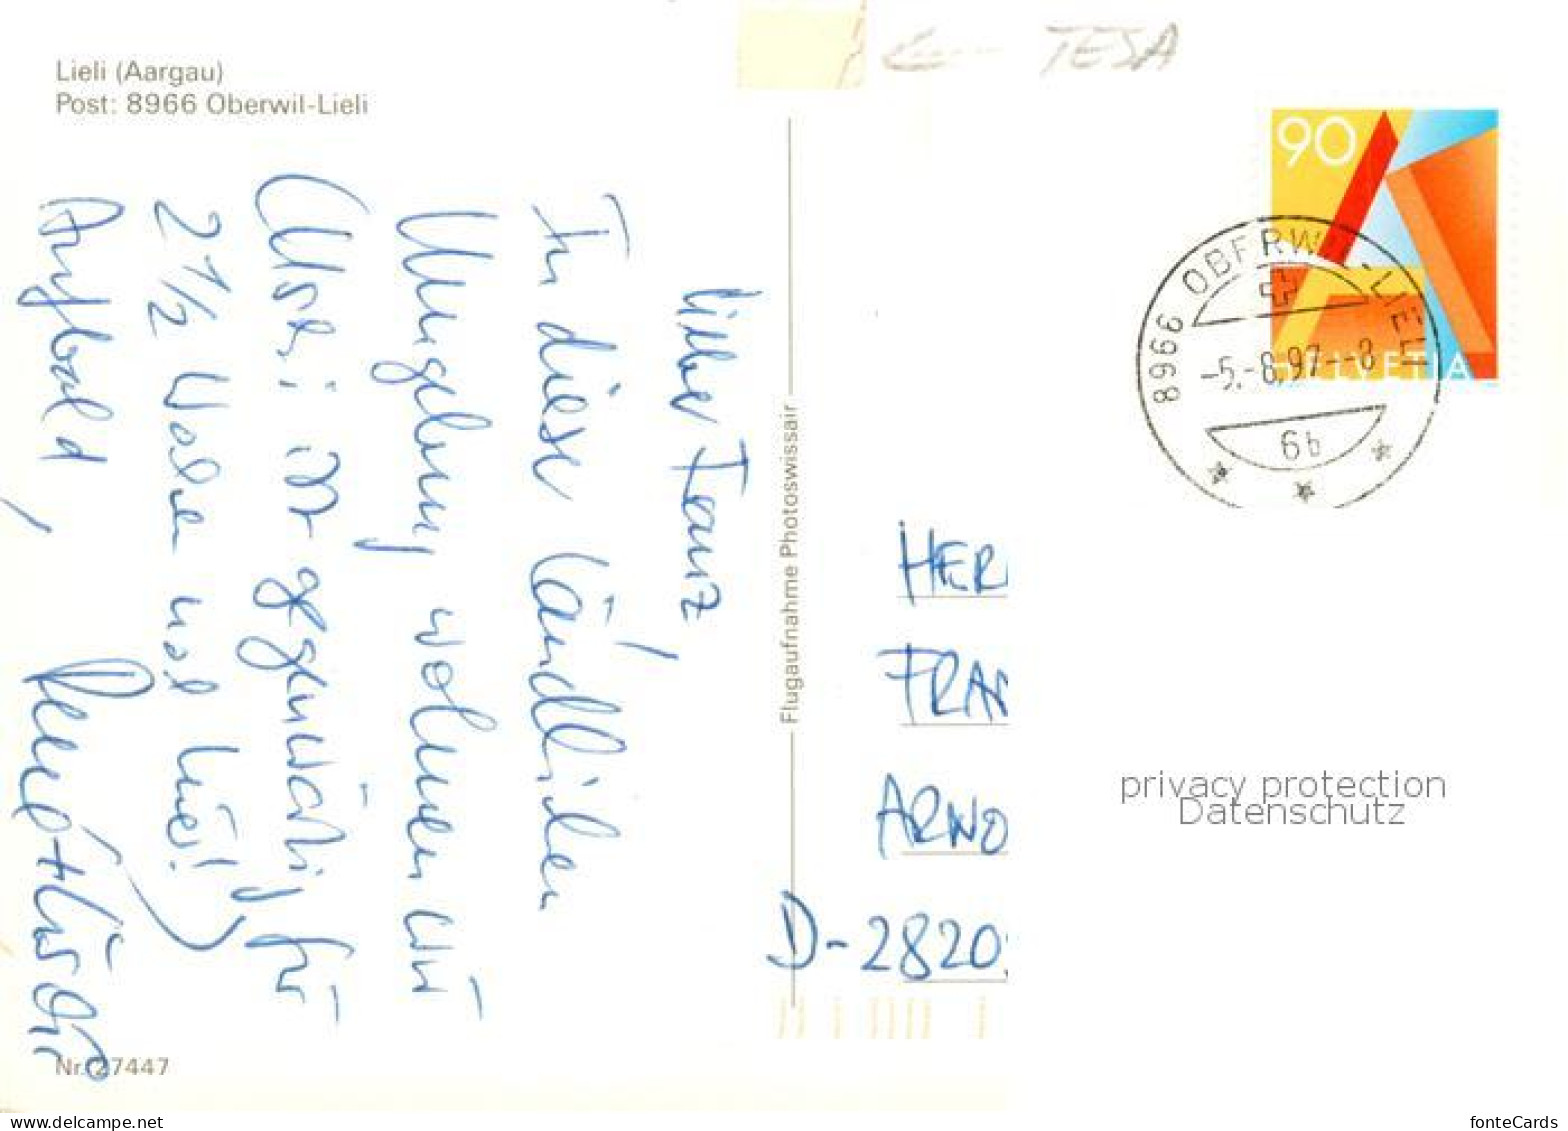 Lieli (Aargau)
Post: 8966 Oberwil-Lieli
TESA
90
HELVETIA
8966 OBERWIL-LIELI
-5.-8.97--8
6b
Lieber Franz,
In dieser ländlichen
Umgebung wohnen wir
Uschi ist gegenwärtig für
2 1/2 Wochen noch hier!
Auf bald,
Flugaufnahme Photoswissair
HER
FRAN
ARNO
D-2820
privacy protection
Datenschutz
Nr. 27447
www.delcampe.net
fonteCards